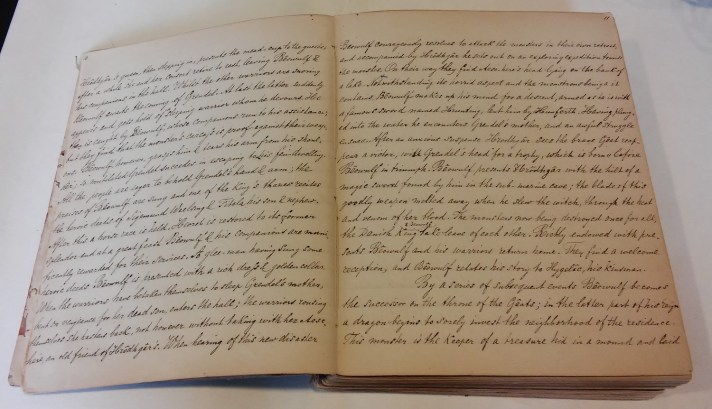 Hrôthgâr's queen then stepping in, presents the mead-cup to the guests;
after a while she and her consort return to rest, leaving Bêowulf &
his companions in the hall. Whilst the other warriors are snoring
Bêowulf awaits the coming of Grendel. At last the latter suddenly
appears and gets hold of a sleeping warrior whom he devours. He
too, is caught by Bêowulf, whose companions run to his assistance;
but they find that the monster's carcass is proof against their weap-
ons. Bêowulf, however, grasps him & tears his arm from his shoul-
der; so mutilated Grendel succeeds in escaping to his fen-dwelling.
All the people are eager to behold Grendel's hand & arm; the
praises of Bêowulf are sung and one of the king's thanes recites
the heroic deeds of Sigmund Wælsing & Fitela, his son & nephew.
After this a horse race is held. Heorot is restored to its former
splendor and at a great feast Bêowulf & his companions are muni-
ficently rewarded for their services. A glee-man having sung some
heroic deeds Bêowulf is presented with a rich & golden collar
When the warriors have betaken themselves to sleep Grendel's mother,
bent on vengeance for her dead son, enters the hall; the warriors rousing
themselves she hastens back, not however without taking with her Aesc-
here, an old friend of Hrôthgâr's. When hearing of this new disaster
11
Bêowulf courageously resolves to attack the monsters in their own retreat
and accompanied by Hrôthgâr he sets out on an exploring expedition towards
the morass. On their way they find Aeschere's head lying on the bank of
a lake. Notwithstanding its horrid aspect and the monstrous beings it
contains, Bêowulf makes up his mind for a descent, armed as he is with
a famous sword named Hrunting, lent him by Hunferth. Having plung-
ed into the water he encounters Grendel's mother, and an awful struggle
ensues. After an anxious suspense Hrôthgâr sees the brave Gêat reap-
pear a victor, with Grendel's head for a trophy, which is borne before
Bêowulf in triumph. Bêowulf presents Hrôthgâr with the hilt of a
magic sword found by him in the sub-marine cave; the blade of this
goodly weapon melted away when he slew the witch, through the heat
and venom of her blood. The monsters now being destroyed once for all,
the Danish King & Bêowulf take leave of each other. Richly endowed with pre-
sents Bêowulf and his warriors return home. They find a welcome
reception, and Bêowulf relates his story to Hygelâc, his kinsman.
By a series of subsequent events Bêowulf becomes
the successor on the throne of the Gêats; in the latter part of his reign
a dragon begins to sorely invest the neighborhood of the residence.
This monster is the keeper of a treasure hid in a mound and laid